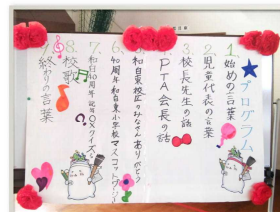 プログラム
1.始めの言葉
2.児童代表の言葉
3.校長先生の話
4.PTA会長の話
5.和白東校区のみなさんありがとう
6.40周年和白東小学校マスコット
7.和白40周年記念○×クイズ
8.校歌
9.終わりの言葉